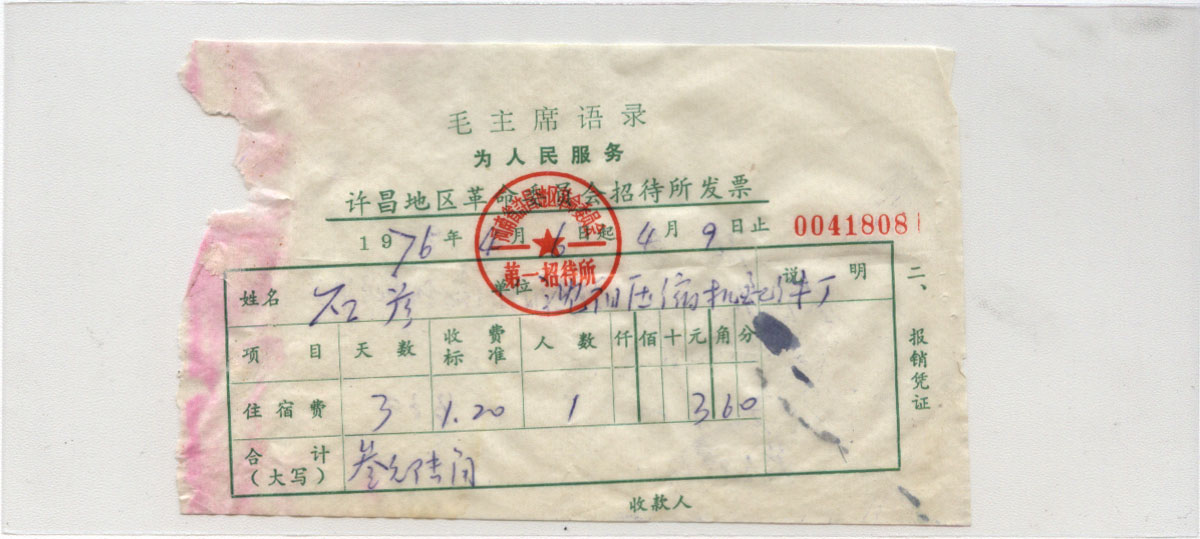 毛主席语录
为人民服务
许昌地区革命委员会招待所发票
1976年4月6日起4月9日止 0041808
河南省许昌地区革命委员会
第一招待所
姓名 石 单位 沈阳压缩机配件厂 说明
项目 天数 收费标准 人数 仟 佰 十 元 角 分
住宿费 3 1.20 1 3 6 0
合计（大写） 叁元陆角
收款人
二、报销凭证